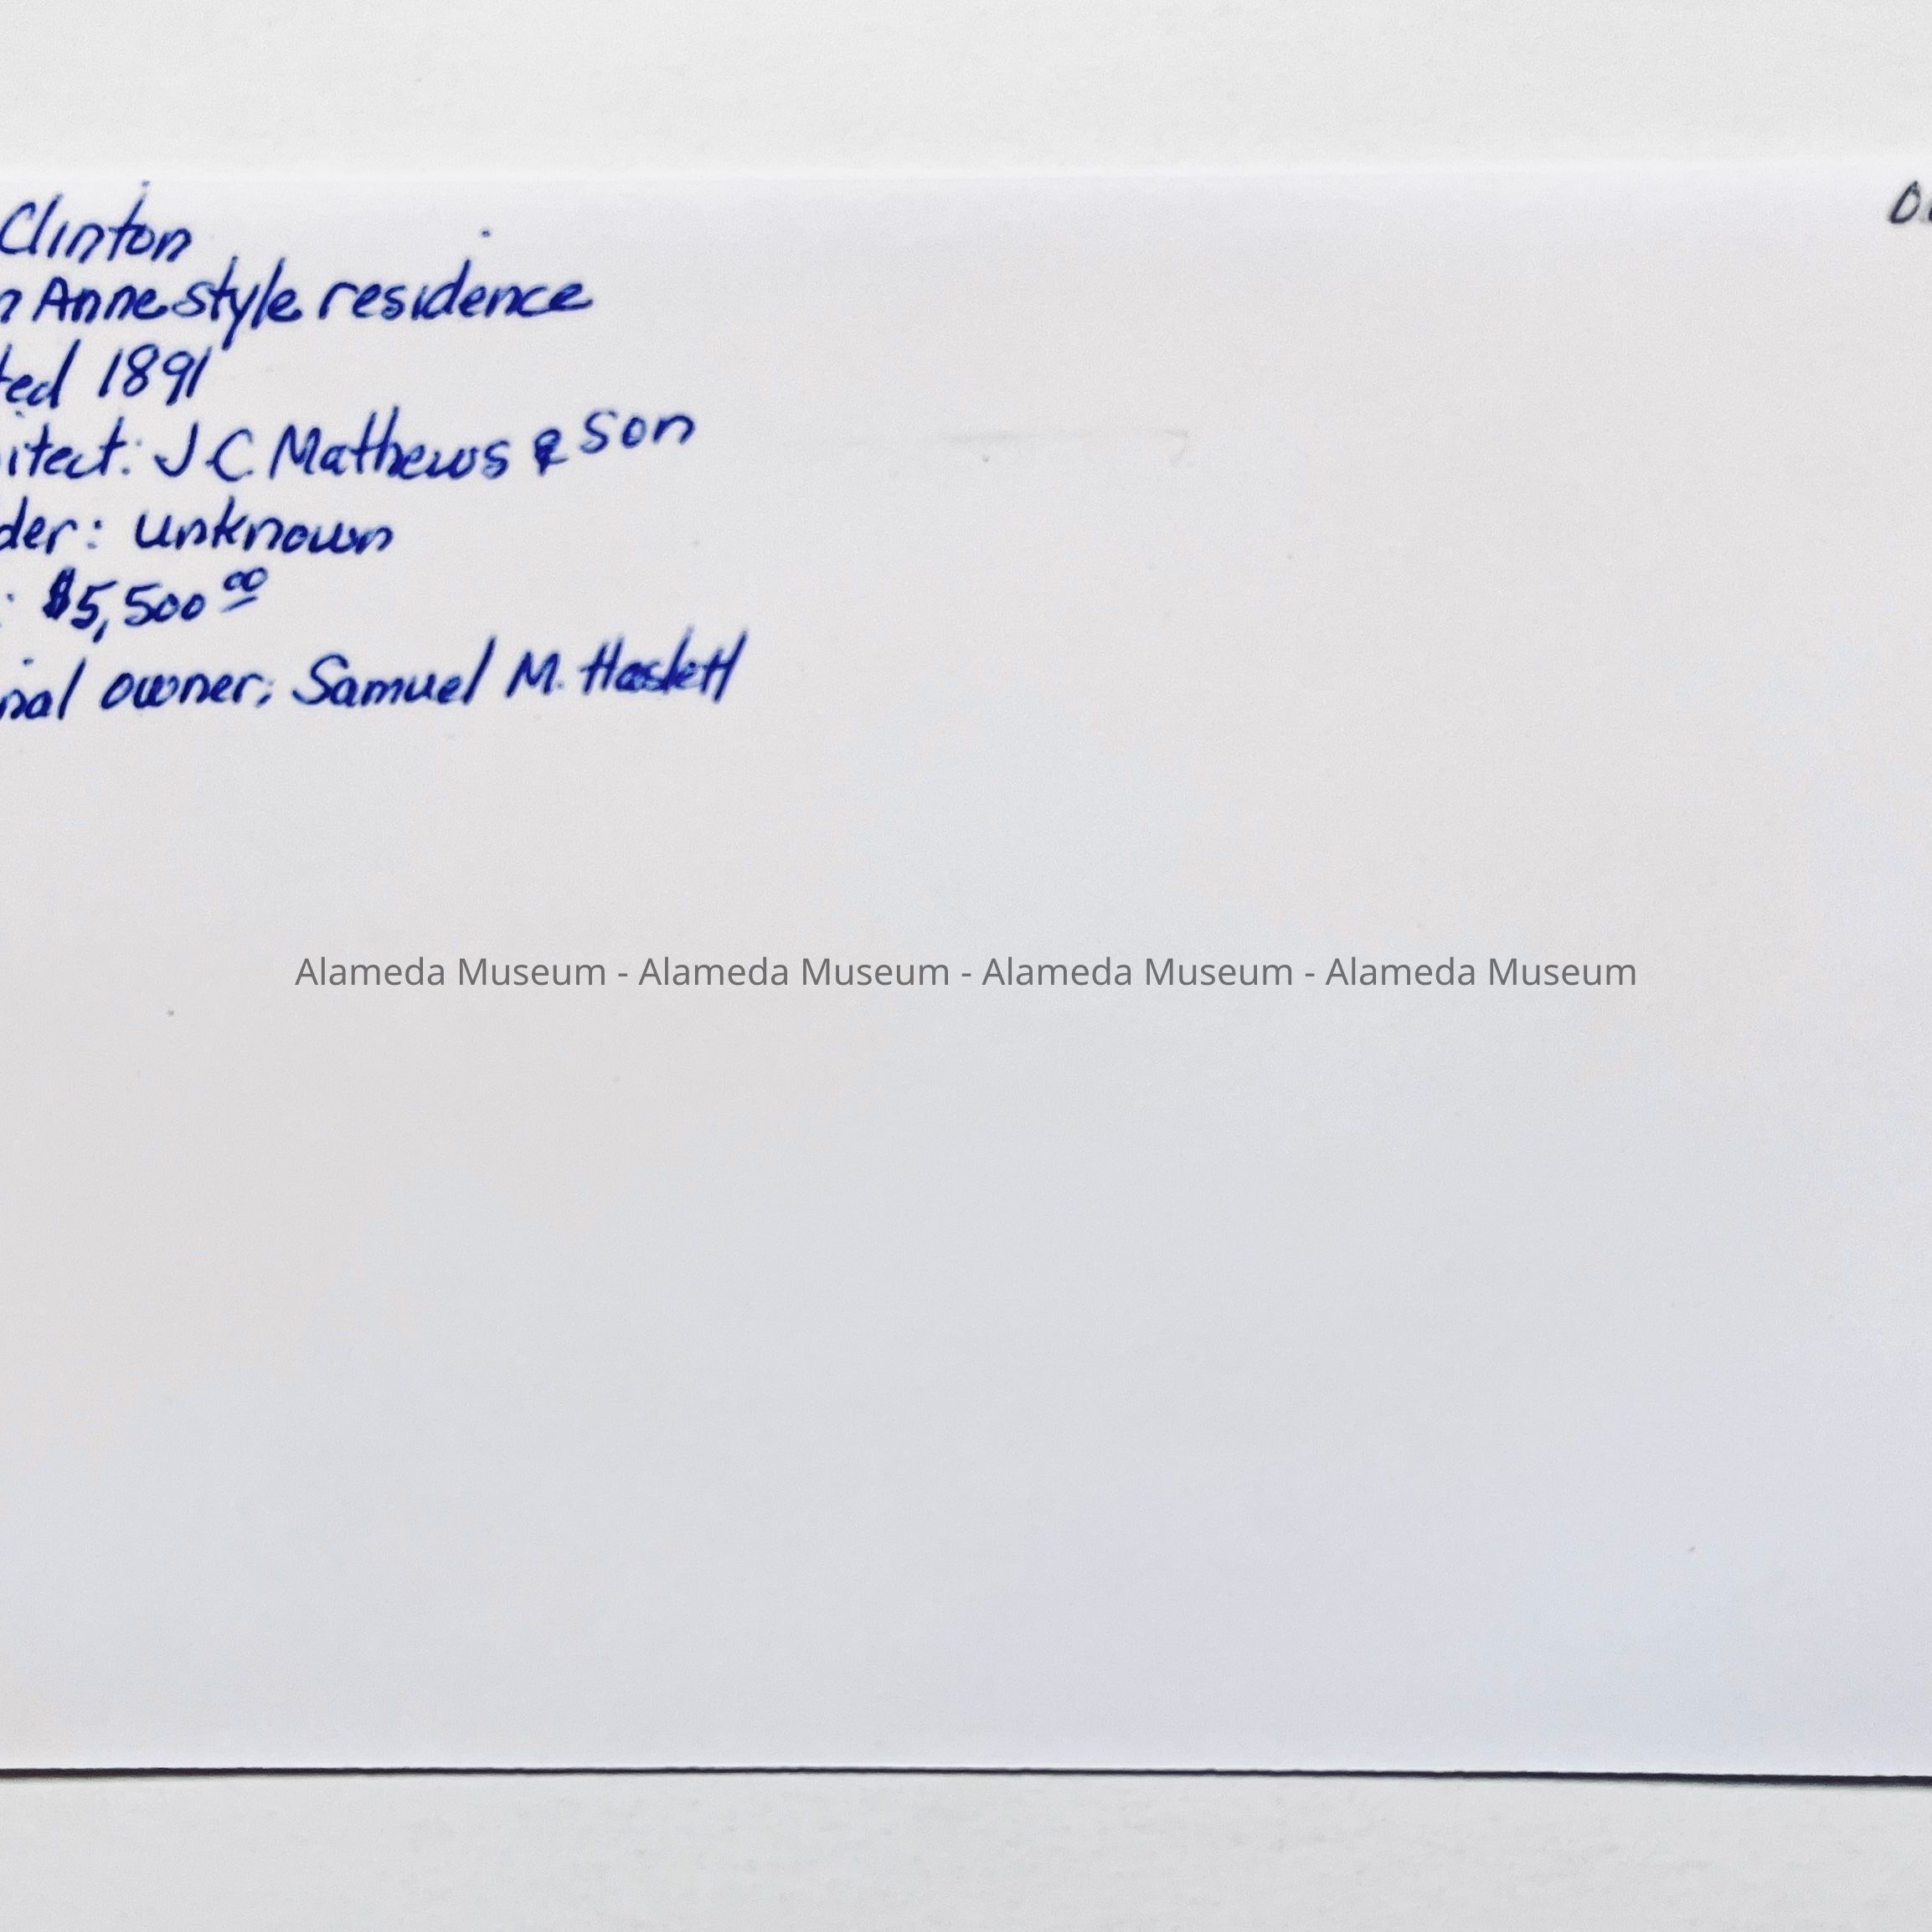 Clinton
n Anne style residence
ted 1891
itect: J C. Mathews & son
der: unknown
: $5,500 00
nal owner: Samuel M. Haslett
Alameda Museum - Alameda Museum - Alameda Museum - Alameda Museum